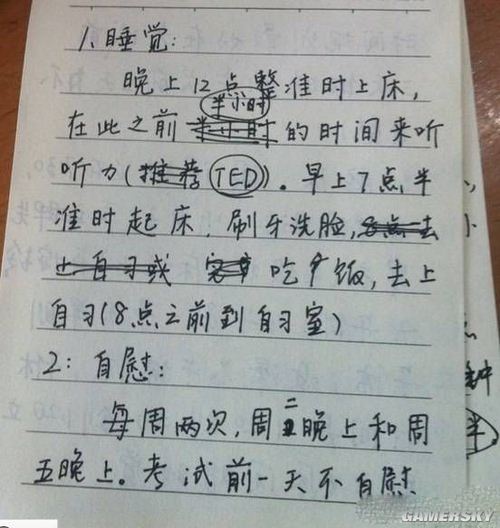 1、睡觉:
晚上12点整准时上床,
半小时
在此之前 半小时 的时间来听
听力(推荐 TED)。早上7点半
准时起床,刷牙洗脸,8点去
上自习或 吃饭,去上
自习(8点之前到自习室)
2:自慰:
每周两次,周二晚上和周
五晚上。考试前一天不自慰
GAMERSKY